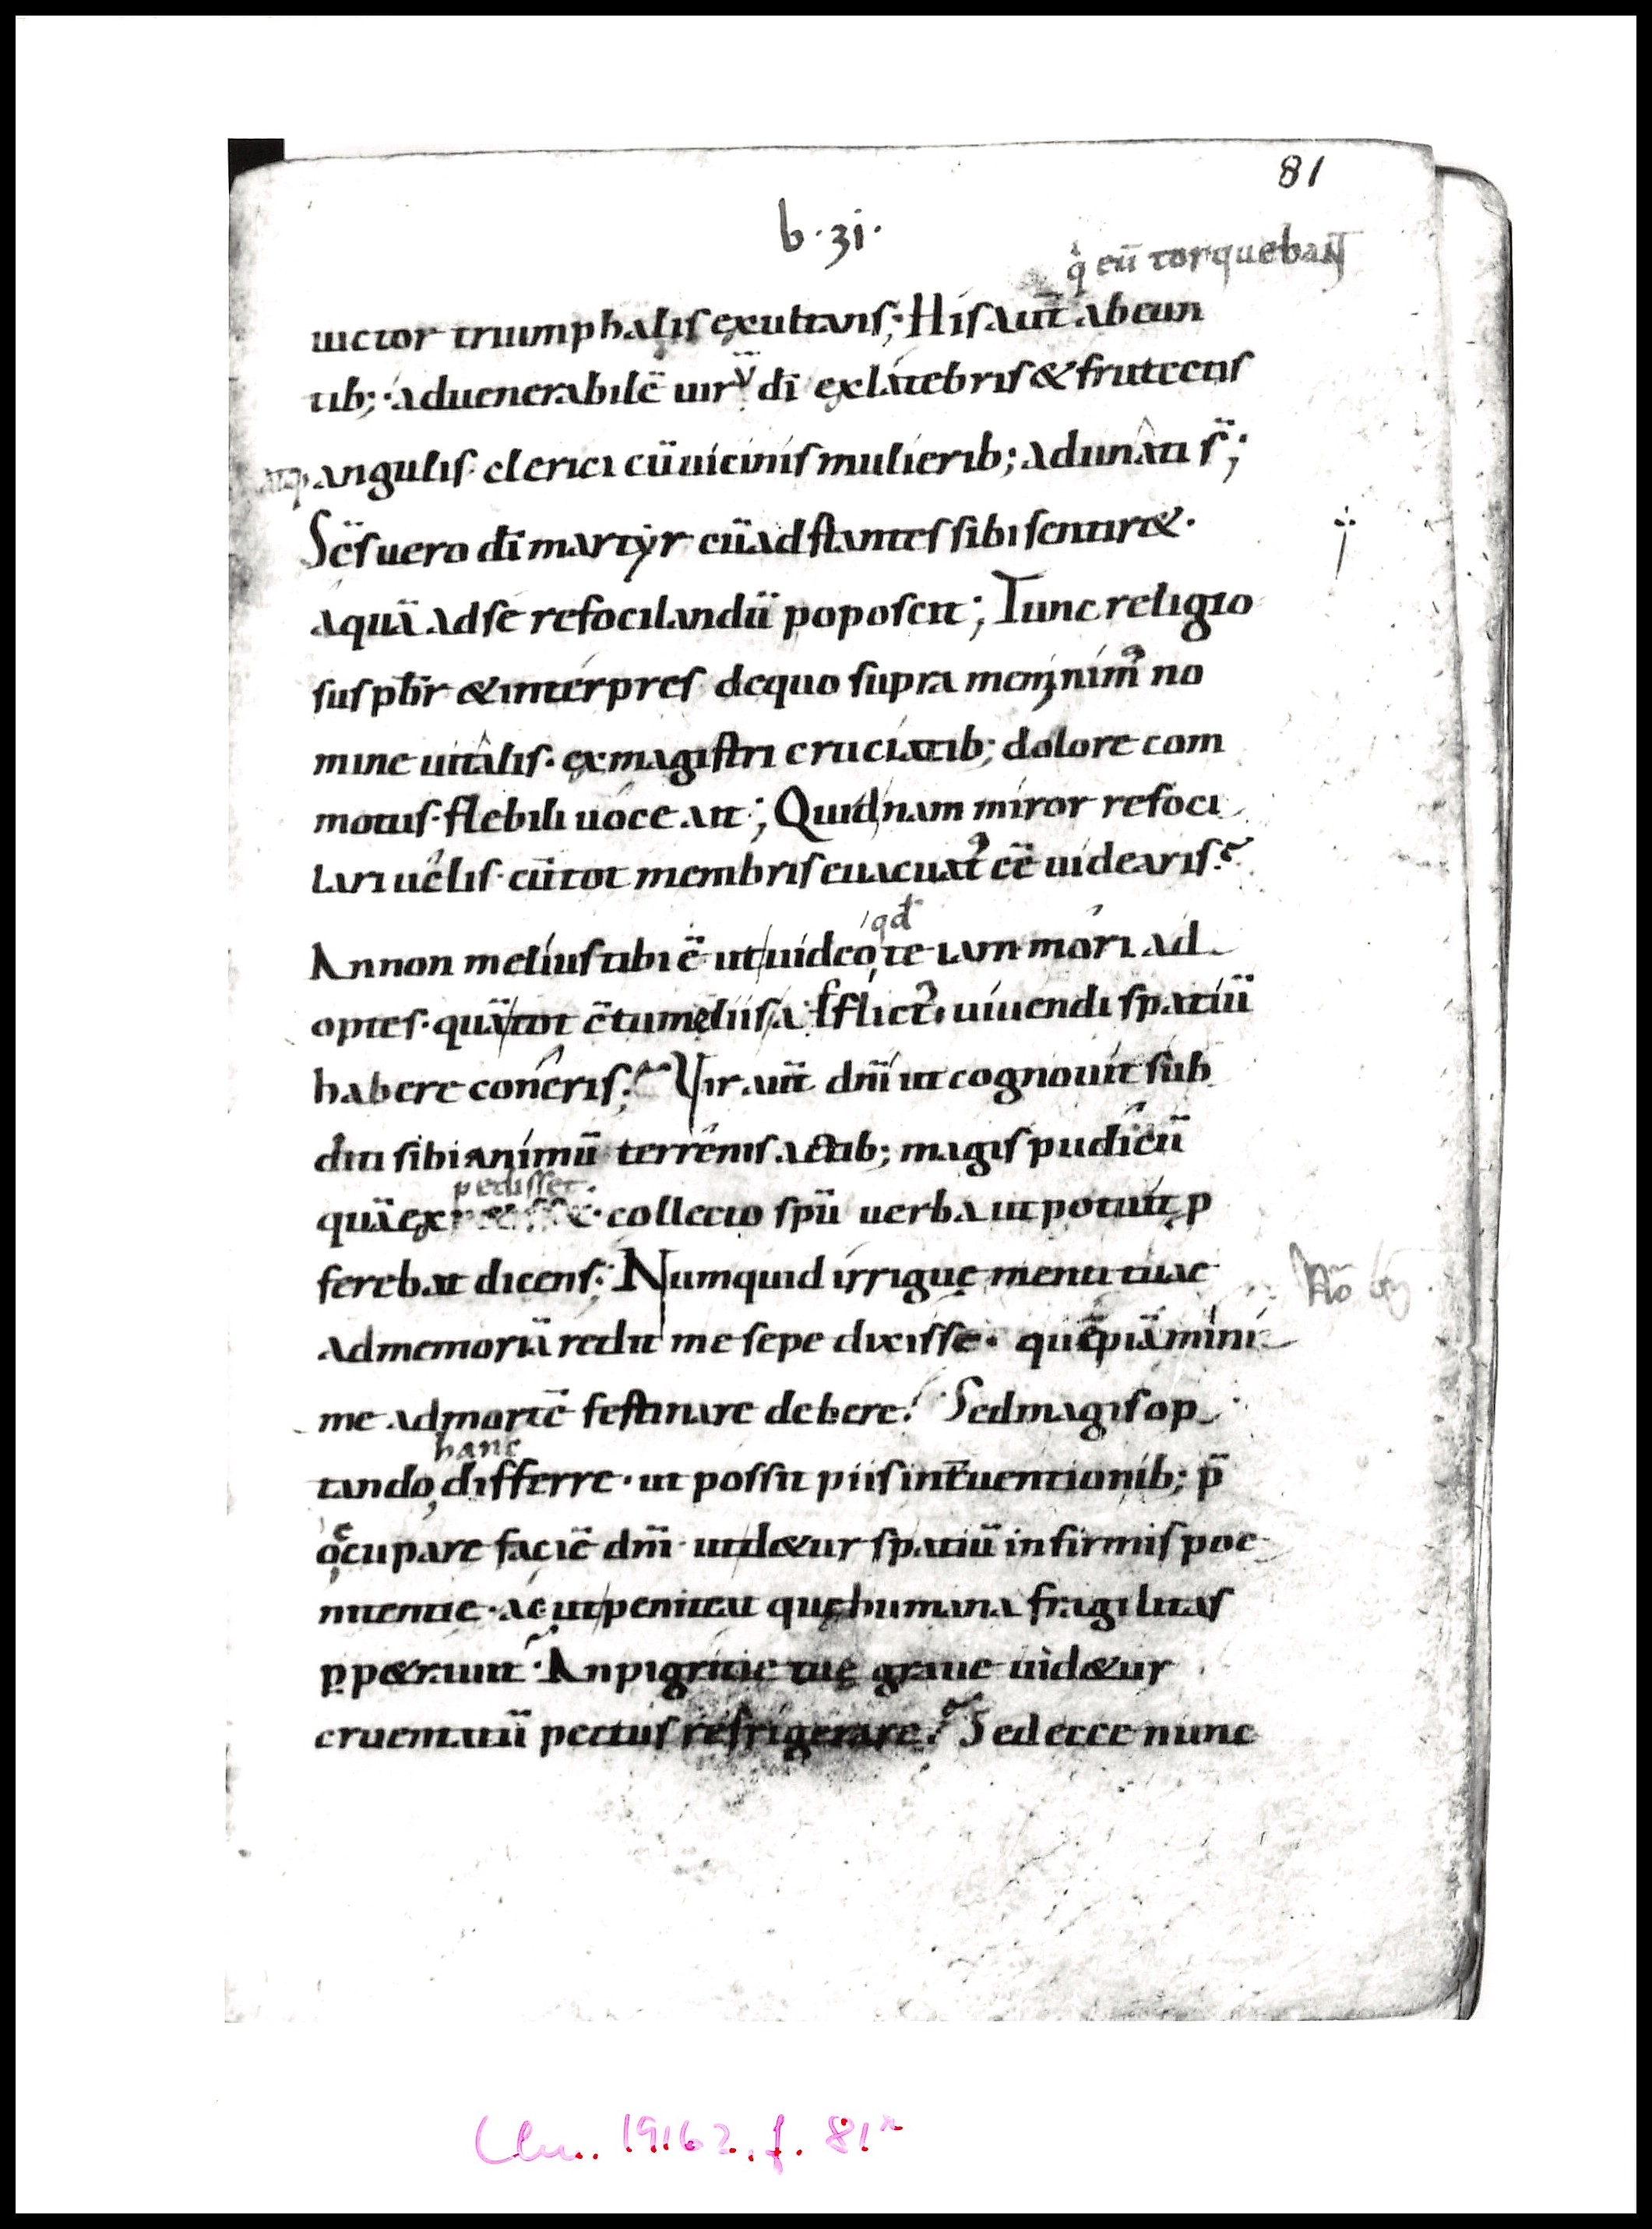 81
b·31·
q̇ eū torquebant
uictor triumphalis exultans; His aut̄ abeun
tib; · aduenerabilē uirv̄ dī exlatebris & frutectis
atq; angulis· clerici cū uicinis mulierib; adunati s̄;
Sc̄s uero dī martyr cū adstantes sibi sentir&·
aquā adse refocilandū poposcit; Tunc religio
sus pb̄r & interpres dequo supra meminim᾽ no
mine uitalis· exmagistri cruciatib; dolore com
motus· flebili uoce ait; Quidnam miror refoci
lari uelis· cū tot membris euacuat᾽ eē uidearis?
qd̄
An non melius tibi ē ut uideo te iam mori ad
optes· quā tot c̄tumeliis afflict᾽ uiuendi spatiū
habere coneris? Vir aut̄ dnī ut cognouit sub
diti sibi animū terrenis actib; magis pudicū
pedisset·
quā ex collecto spū uerba ut potuit p
ferebat dicens; Numquid irrigue menti tuae
ad memoriā redit me sepe dixisse· quēpiā mini
me ad mortē festinare debere? Sed magis op
hanc
tando differre· ut possit piis int̄uentionib; p̄
occupare faciē dnī· ut d&ur spatiū infirmis poe
nitentie· ac ut peniteat que humana fragilitas
pp&rauit· An pigritie tuę graue uid&ur
cruentatū pectus refrigerare? Sed ecce nunc
Clm. 19162. f. 81r